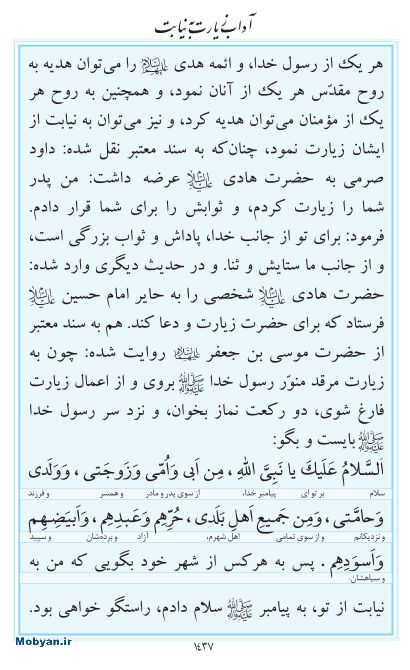 آداب زیارت به نیابت
هر یک از رسول خدا، و ائمه هدی علیهم‌السلام را می‌توان هدیه به
روح مقدّس هر یک از آنان نمود، و همچنین به روح هر
یک از مؤمنان می‌توان هدیه کرد، و نیز می‌توان به نیابت از
ایشان زیارت نمود، چنان‌که به سند معتبر نقل شده: داود
صرمی به حضرت هادی علیه‌السلام عرضه داشت: من پدر
شما را زیارت کردم، و ثوابش را برای شما قرار دادم.
فرمود: برای تو از جانب خدا، پاداش و ثواب بزرگی است،
و از جانب ما ستایش و ثنا. و در حدیث دیگری وارد شده:
حضرت هادی علیه‌السلام شخصی را به حایر امام حسین علیه‌السلام
فرستاد که برای حضرت زیارت و دعا کند. هم به سند معتبر
از حضرت موسی بن جعفر علیهماالسلام روایت شده: چون به
زیارت مرقد منوّر رسول خدا ﷺ بروی و از اعمال زیارت
فارغ شوی، دو رکعت نماز بخوان، و نزد سر رسول خدا
ﷺ بایست و بگو:
اَلسَّلامُ عَلَيْكَ يا نَبِىَّ اللهِ ، مِن اَبى وَاُمّى وَزَوجَتى ، وَوَلَدى
سلام بر تو ای پیامبر خدا، از سوی پدر و مادر و همسر و فرزند
وَحامَّتى ، وَمِن جَميعِ اَهلِ بَلَدى ، حُرِّهِم وَعَبدِهِم ، وَاَبيَضِهِم
و نزدیکانم و از سوی تمامی اهل شهرم، آزاد و برده‌شان و سپید
وَاَسوَدِهِم . پس به هرکس از شهر خود بگویی که من به
و سیاهشان.
نیابت از تو، به پیامبر ﷺ سلام دادم، راستگو خواهی بود.
Mobyan.ir
۱۴۳۷